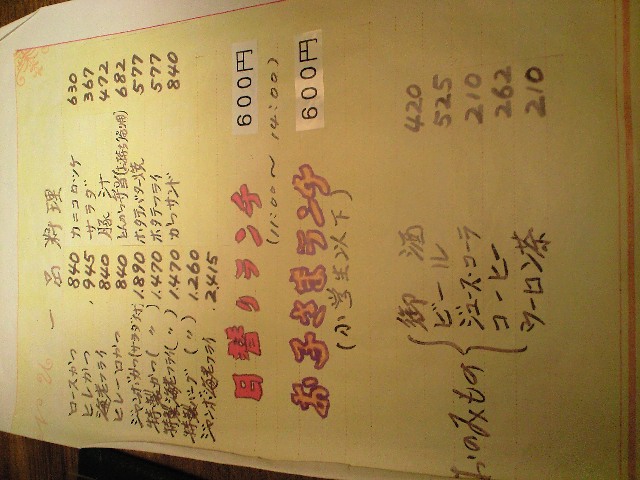 一品料理
ロースかつ 840 カニコロッケ 630
ヒレかつ 945 サラダ 367
海老フライ 840 豚汁 472
ヒレ一口かつ 840 とんかつ弁当 682
ジャンボかつ(サラダ付) 1.890 ホタテバター焼 577
特製かつ(〃) 1.470 ホタテフライ 577
特製海老フライ(〃) 1.470 かつサンド 840
特製ハーブ(〃) 1.260
ジャンボ海老フライ 2.415
日替りランチ 600円
(11:00〜14:00)
お子さまランチ 600円
(小学生以下)
おのみもの
御酒 420
ビール 525
ジュース・コーラ 210
コーヒー 262
ウーロン茶 210